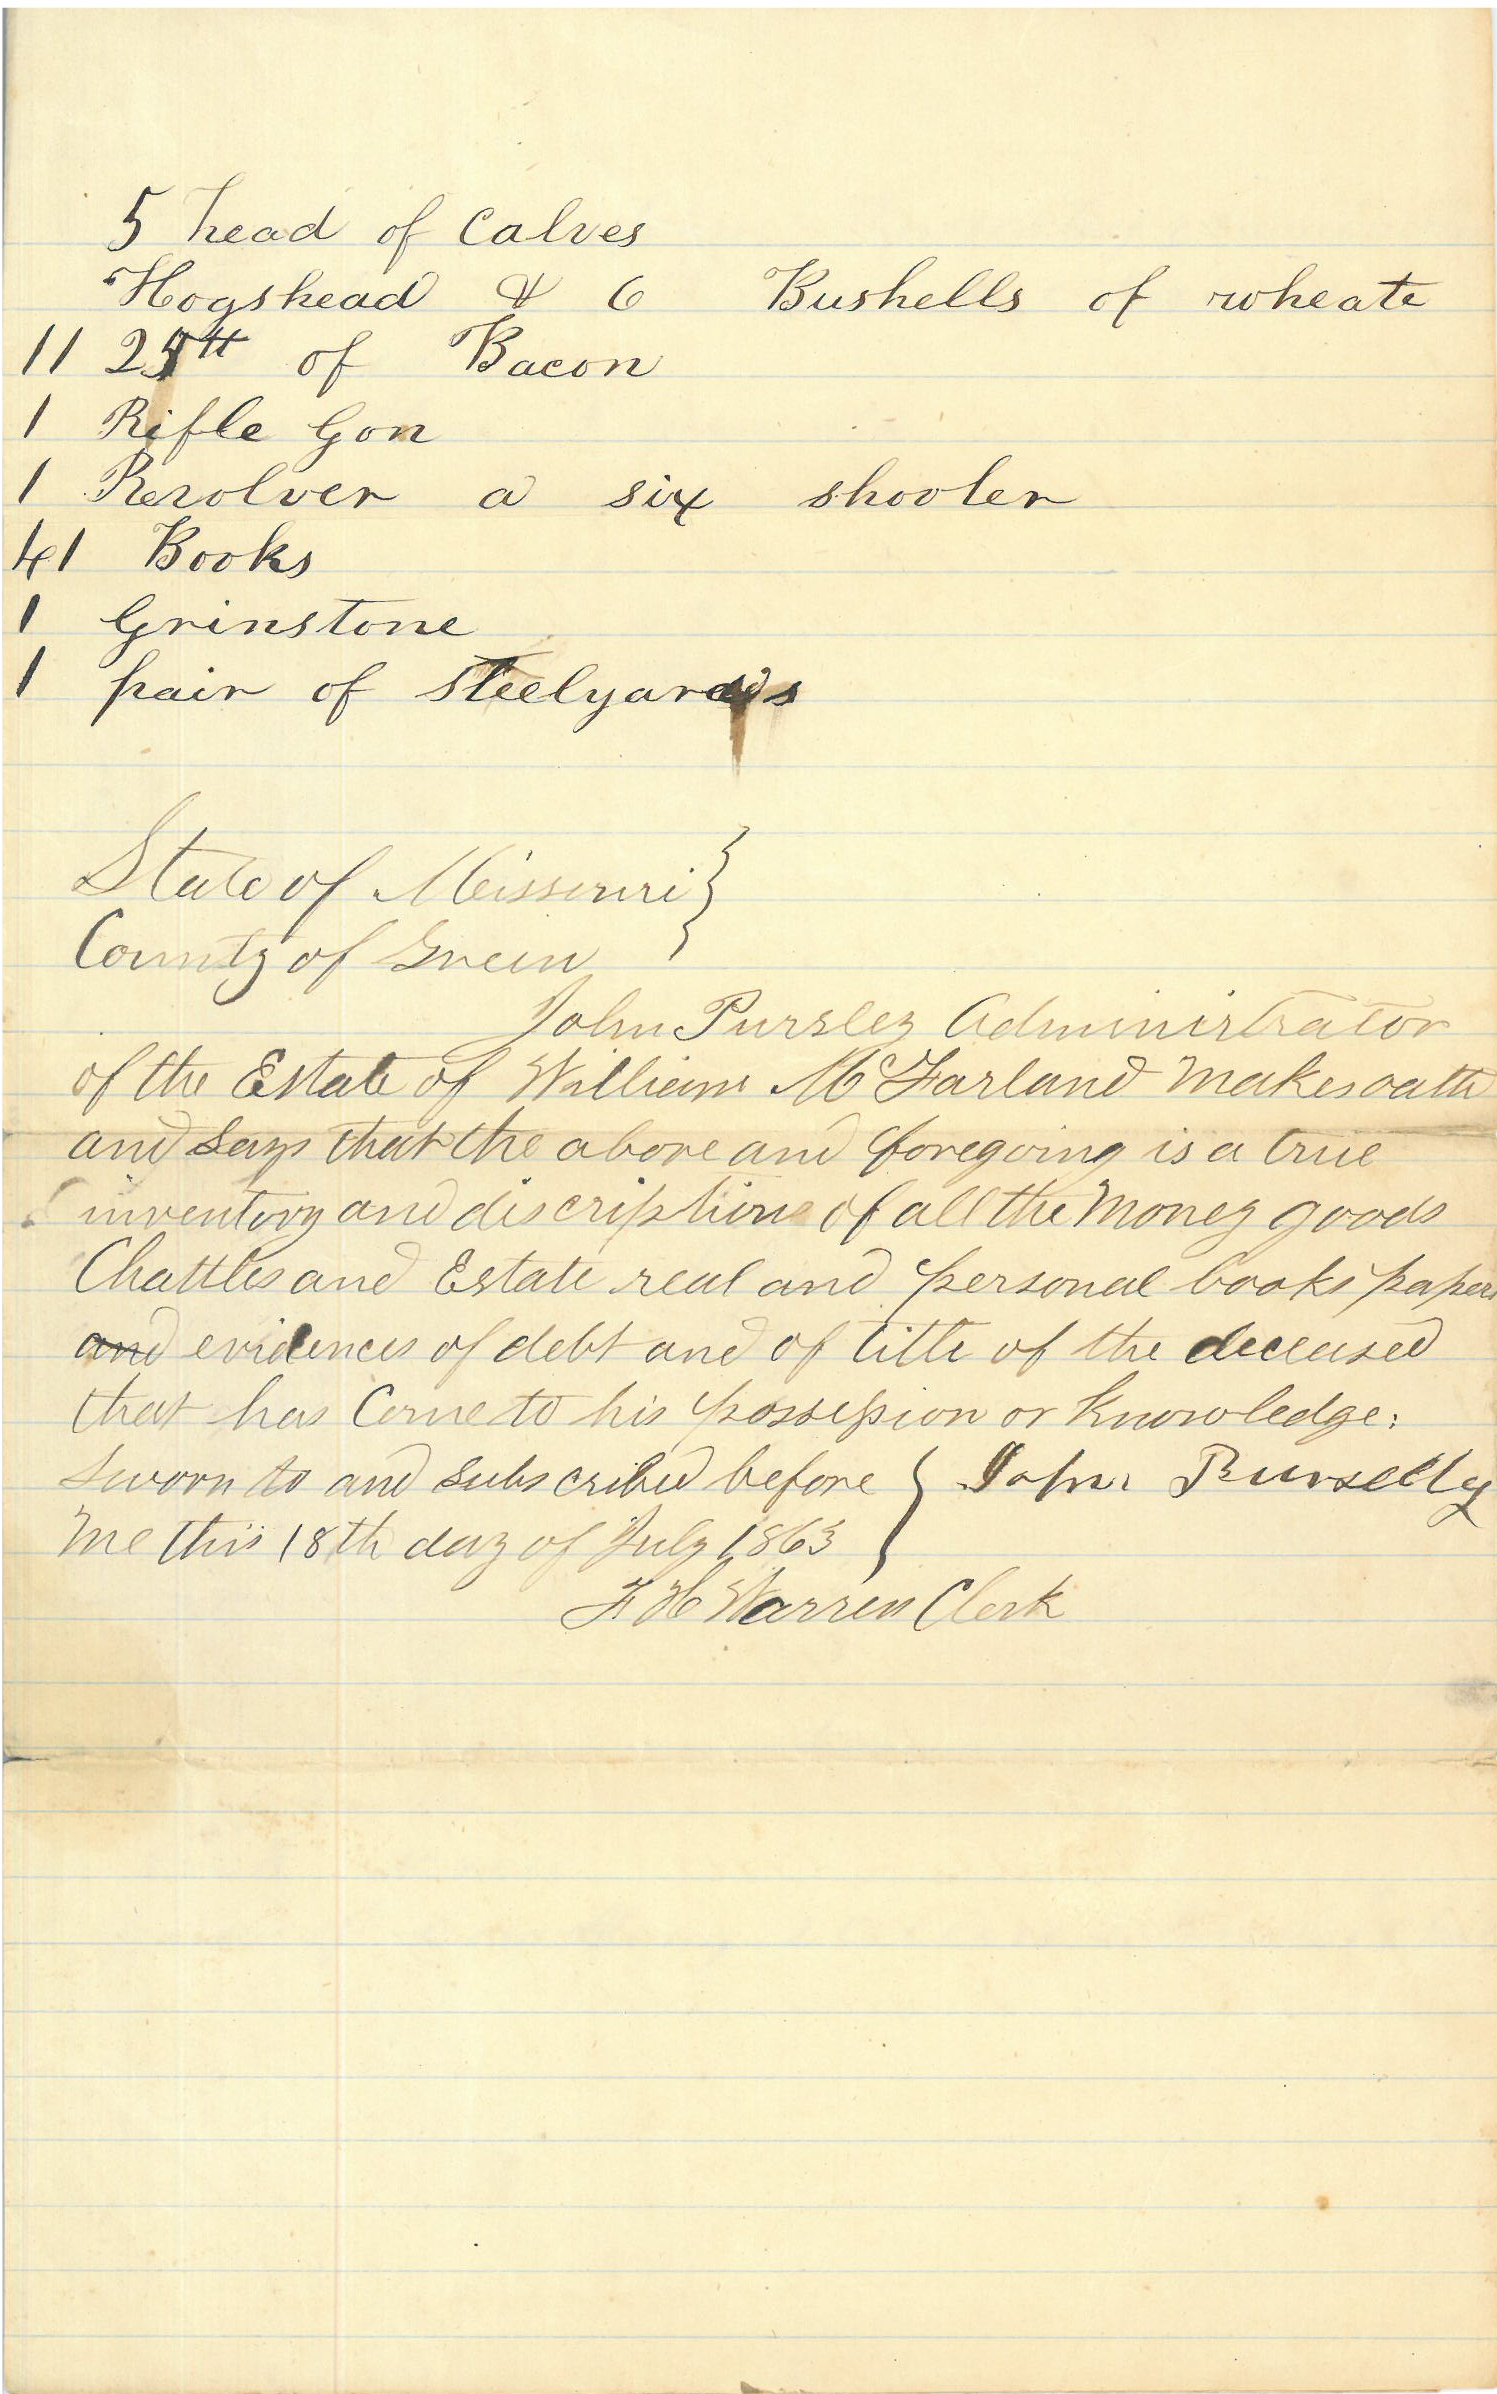 5 head of Calves
Hogshead & 6 Bushells of wheate
11 25 tt of Bacon
1 Rifle Gon
1 Revolver a six shooter
41 Books
1 Grinstone
1 pair of Steelyards
State of Missouri }
County of Green }
John Pursley Administrator
of the Estate of William McFarland makes oath
and says that the above and foregoing is a true
inventory and discriptions of all the money goods
Chattles and Estate real and personal books papers
and evidences of debt and of title of the deceased
that has Come to his possession or knowledge:
Sworn to and subscribed before } John Purselly
me this 18th day of July 1863 }
F H Warren Clerk